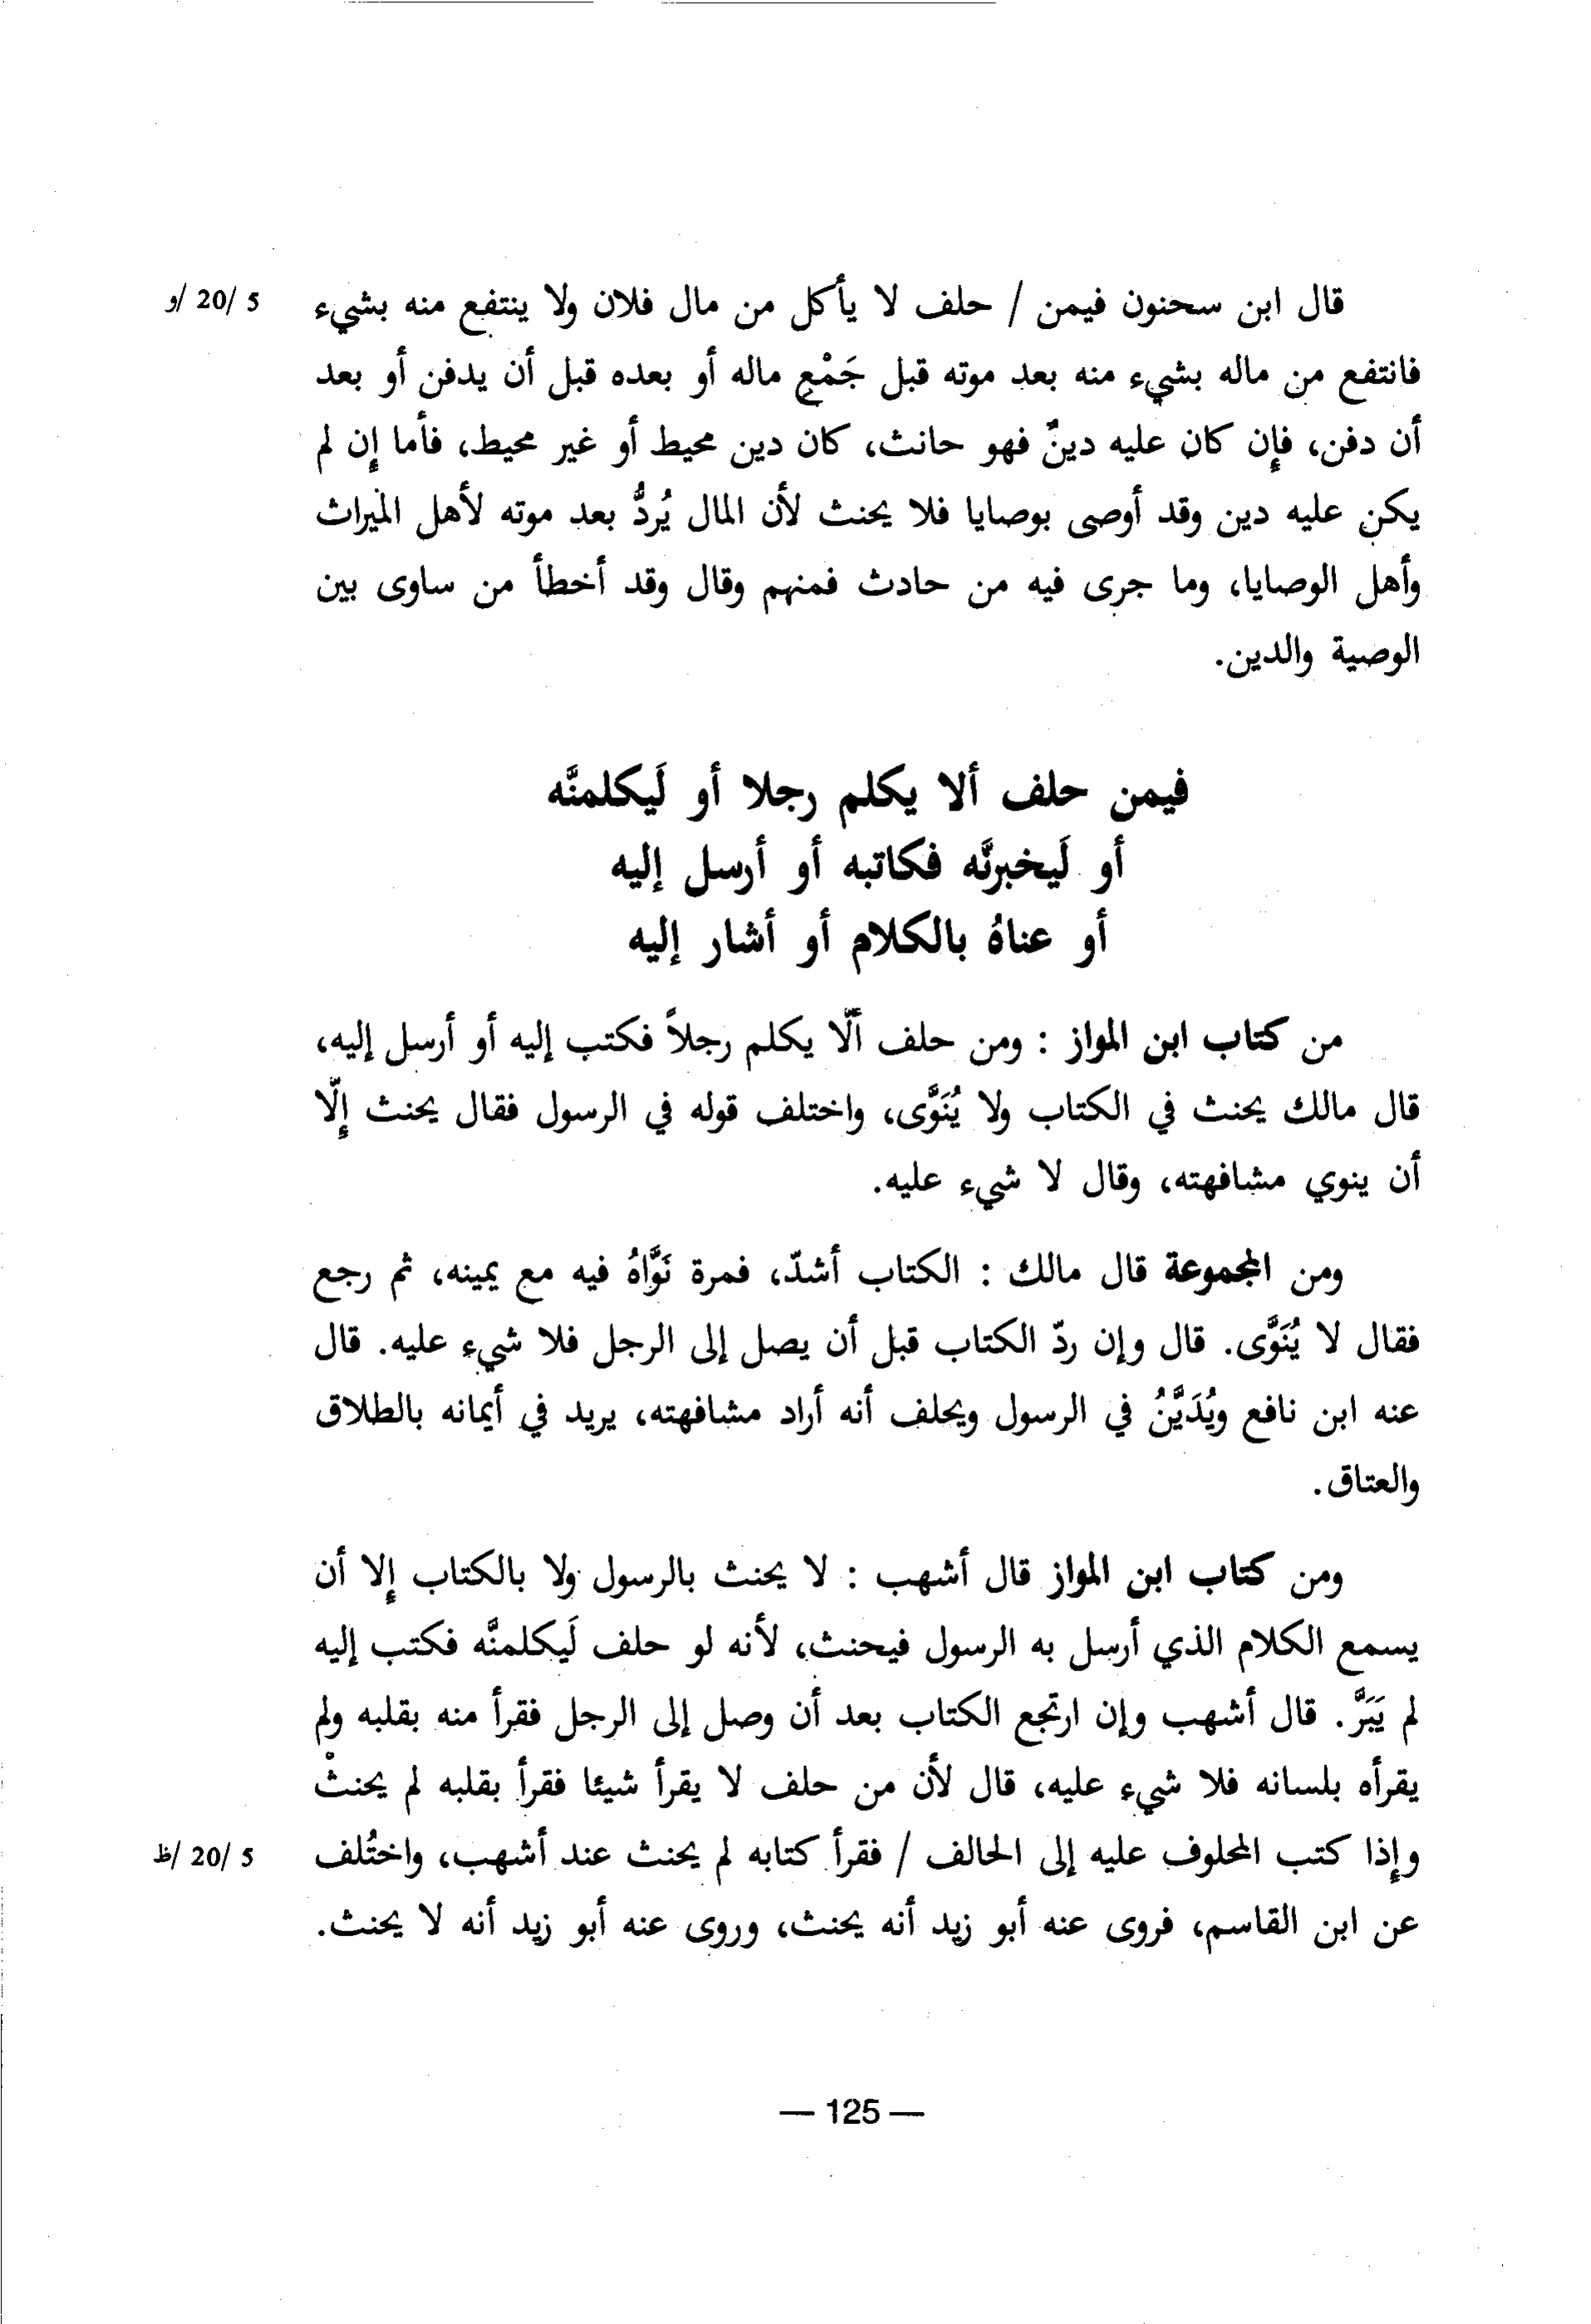 قال ابن سحنون فيمن / حلف لا يأكل من مال فلان ولا ينتفع منه بشيء 5 /20 /و
فانتفع من ماله بشيء منه بعد موته قبل جَمْعِ ماله أو بعده قبل أن يدفن أو بعد
أن دفن، فإن كان عليه دينٌ فهو حانث، كان دين محيط أو غير محيط، فأما إن لم
يكن عليه دين وقد أوصى بوصايا فلا يحنث لأن المال يُردُّ بعد موته لأهل الميراث
وأهل الوصايا، وما جرى فيه من حادث فمنهم وقال وقد أخطأ من ساوى بين
الوصية والدين.
فيمن حلف ألا يكلم رجلا أو لَيكلمنَّه
أو لَيخبرنَّه فكاتبه أو أرسل إليه
أو عناهُ بالكلام أو أشار إليه
من كتاب ابن المواز : ومن حلف ألَّا يكلم رجلاً فكتب إليه أو أرسل إليه،
قال مالك يحنث في الكتاب ولا يُنَوَّى، واختلف قوله في الرسول فقال يحنث إلَّا
أن ينوي مشافهته، وقال لا شيء عليه.
ومن المجموعة قال مالك : الكتاب أشدّ، فمرة نَوَّاهُ فيه مع يمينه، ثم رجع
فقال لا يُنَوَّى. قال وإن ردّ الكتاب قبل أن يصل إلى الرجل فلا شيء عليه. قال
عنه ابن نافع ويُدَيَّنُ في الرسول ويحلف أنه أراد مشافهته، يريد في أيمانه بالطلاق
والعتاق.
ومن كتاب ابن المواز قال أشهب : لا يحنث بالرسول ولا بالكتاب إلا أن
يسمع الكلام الذي أرسل به الرسول فيحنث، لأنه لو حلف لَيكلمنَّه فكتب إليه
لم يَبَرَّ. قال أشهب وإن ارتجع الكتاب بعد أن وصل إلى الرجل فقرأ منه بقلبه ولم
يقرأه بلسانه فلا شيء عليه، قال لأن من حلف لا يقرأ شيئا فقرأ بقلبه لم يحنثْ
وإذا كتب المحلوف عليه إلى الحالف / فقرأ كتابه لم يحنث عند أشهب، واختُلف 5 /20 /ظ
عن ابن القاسم، فروى عنه أبو زيد أنه يحنث، وروى عنه أبو زيد أنه لا يحنث.
— 125 —